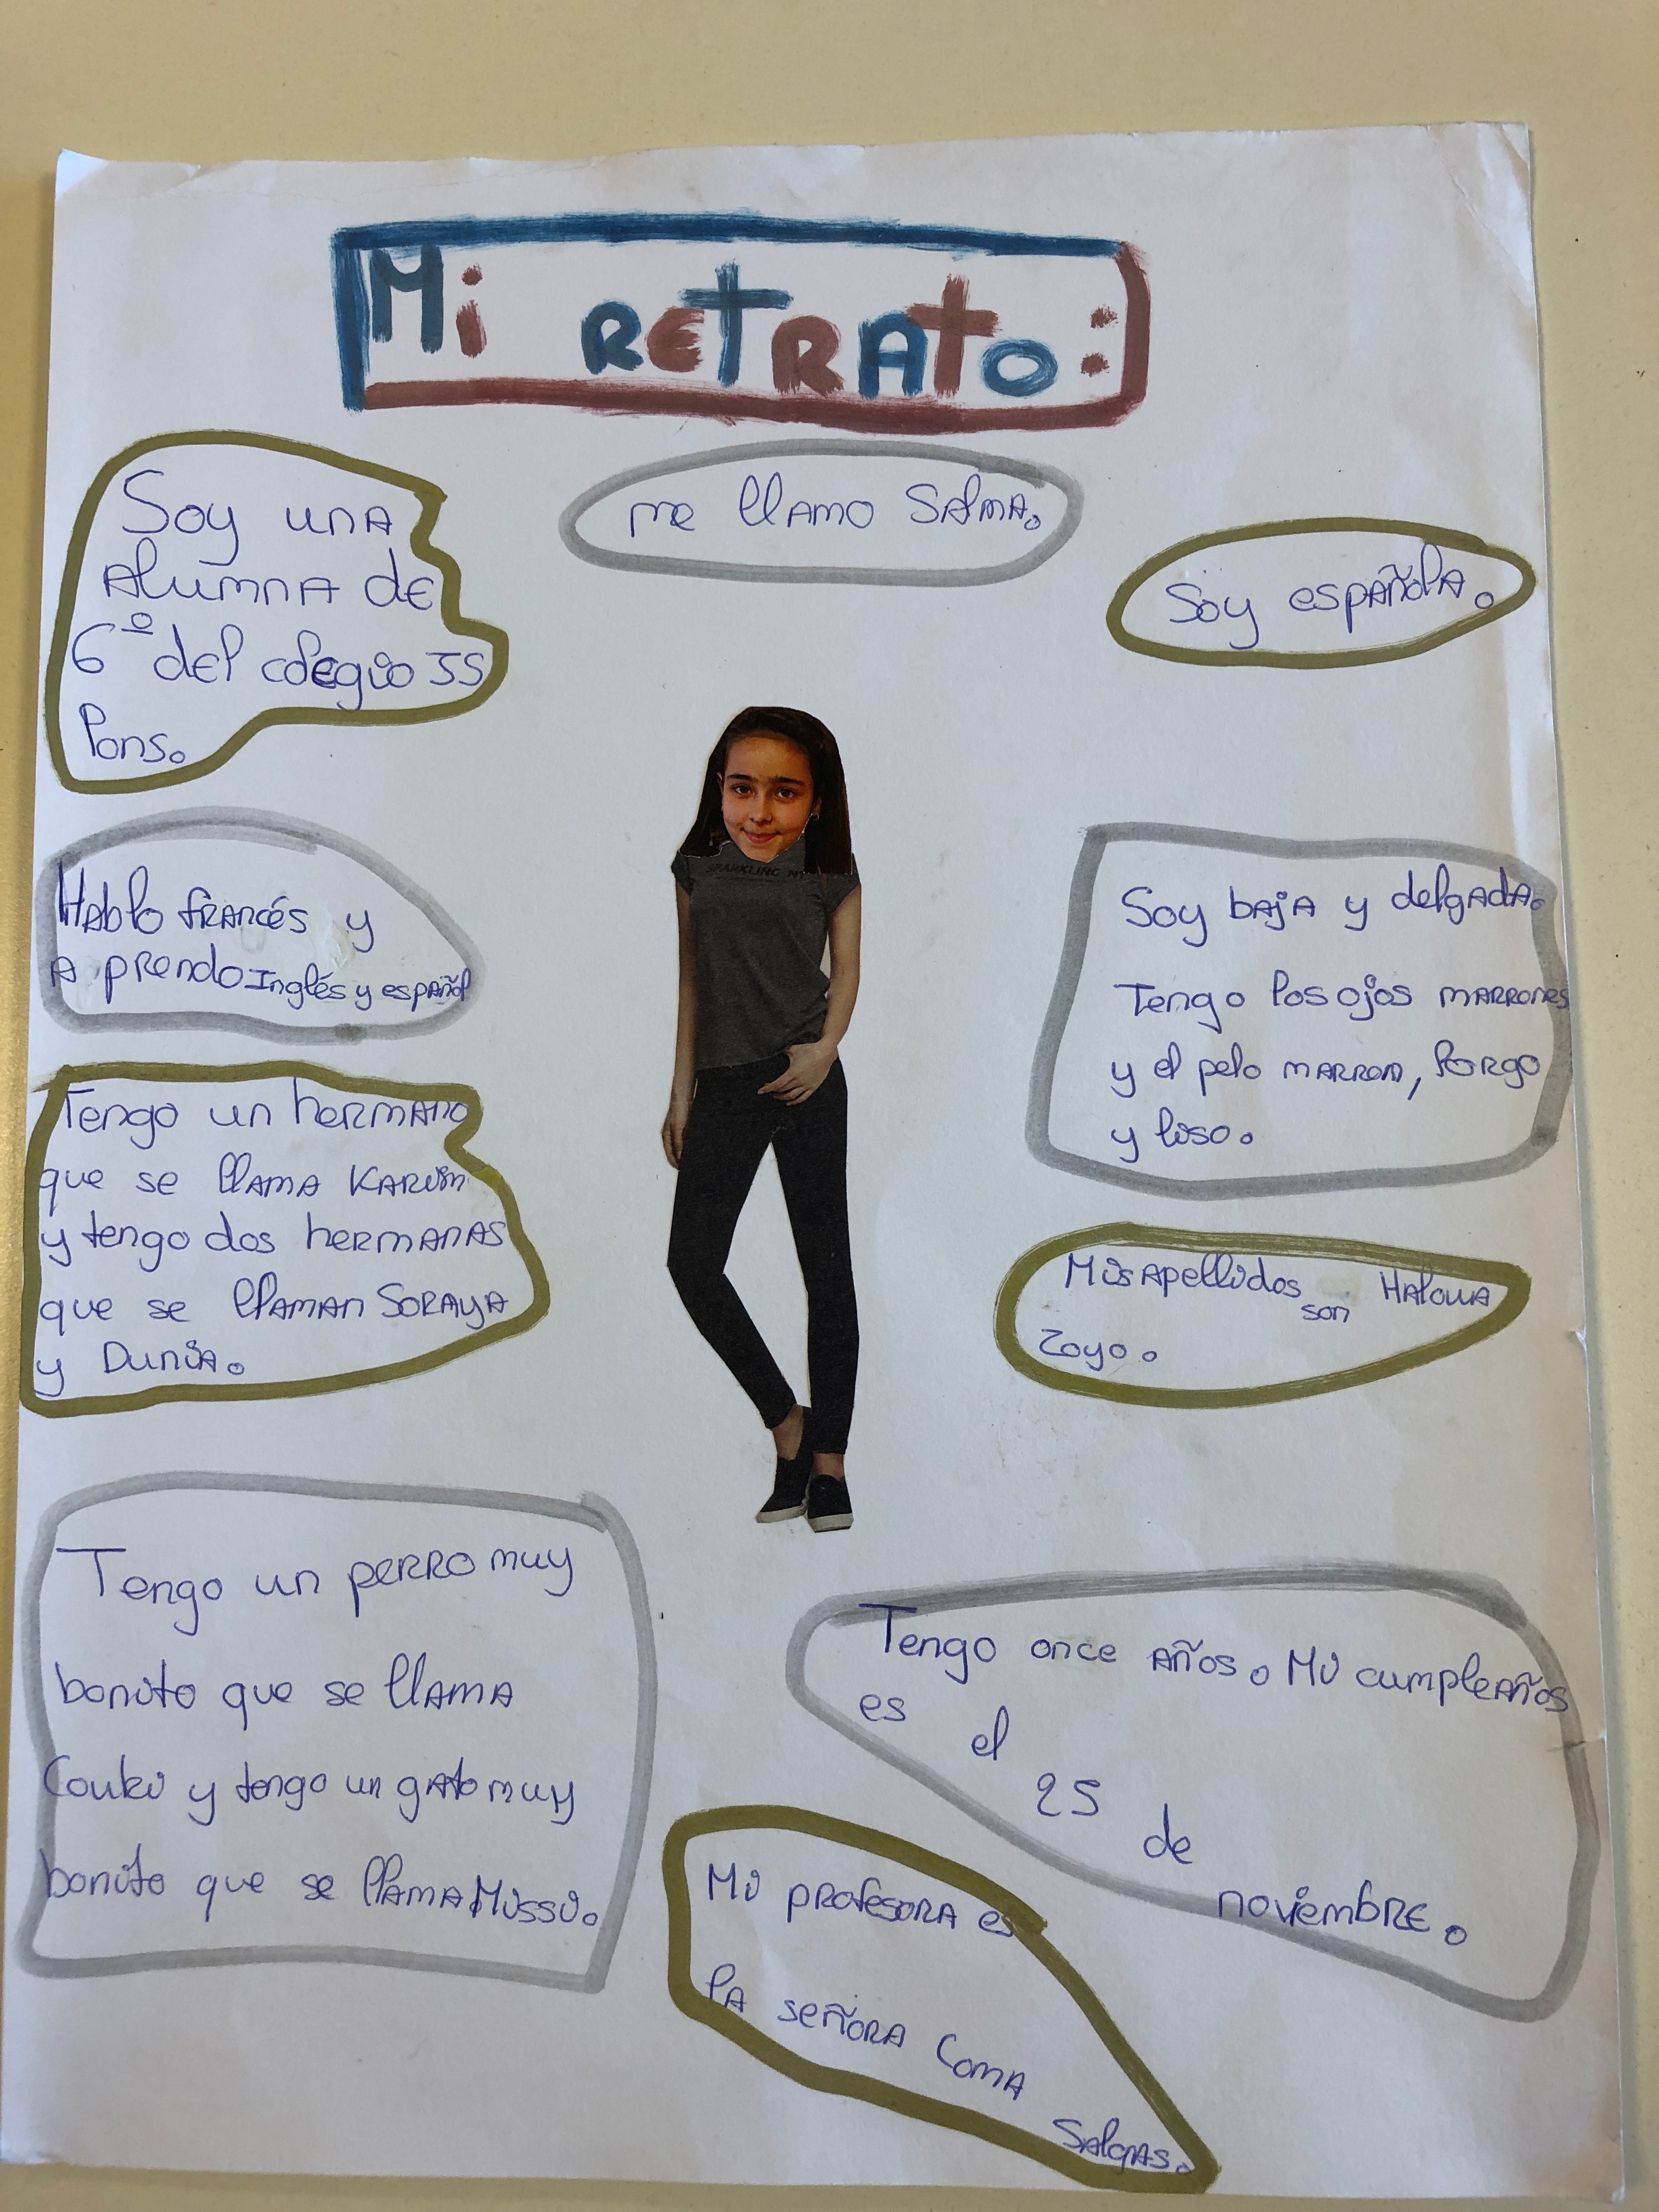 Mi retrato:
me llamo Salma.
Soy una
alumna de
6º del colegio JS
Pons.
Soy española.
Hablo francés y
a prendo Inglés y español
Soy baja y delgada.
Tengo los ojos marrones
y el pelo marron, largo
y liso.
Tengo un hermano
que se llama Karim
y tengo dos hermanas
que se llaman Soraya
y Dunia.
Mis apellidos son Haloua
Zoyo.
Tengo un perro muy
bonito que se llama
Couki y tengo un gato muy
bonito que se llama Missi.
Tengo once años. Mi cumpleaños
es el
25
de
noviembre.
Mi profesora es
la señora Coma
Salgas.
SPARKLING NY